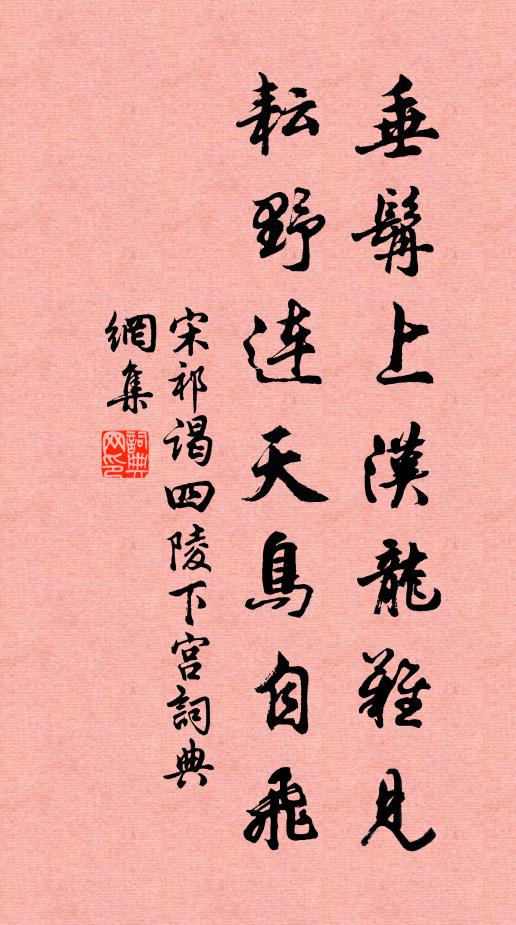 垂髯上漢龍難見
耘野連天鳥自飛
宋祁謁四陵下宮詞典
網集
詞典网印